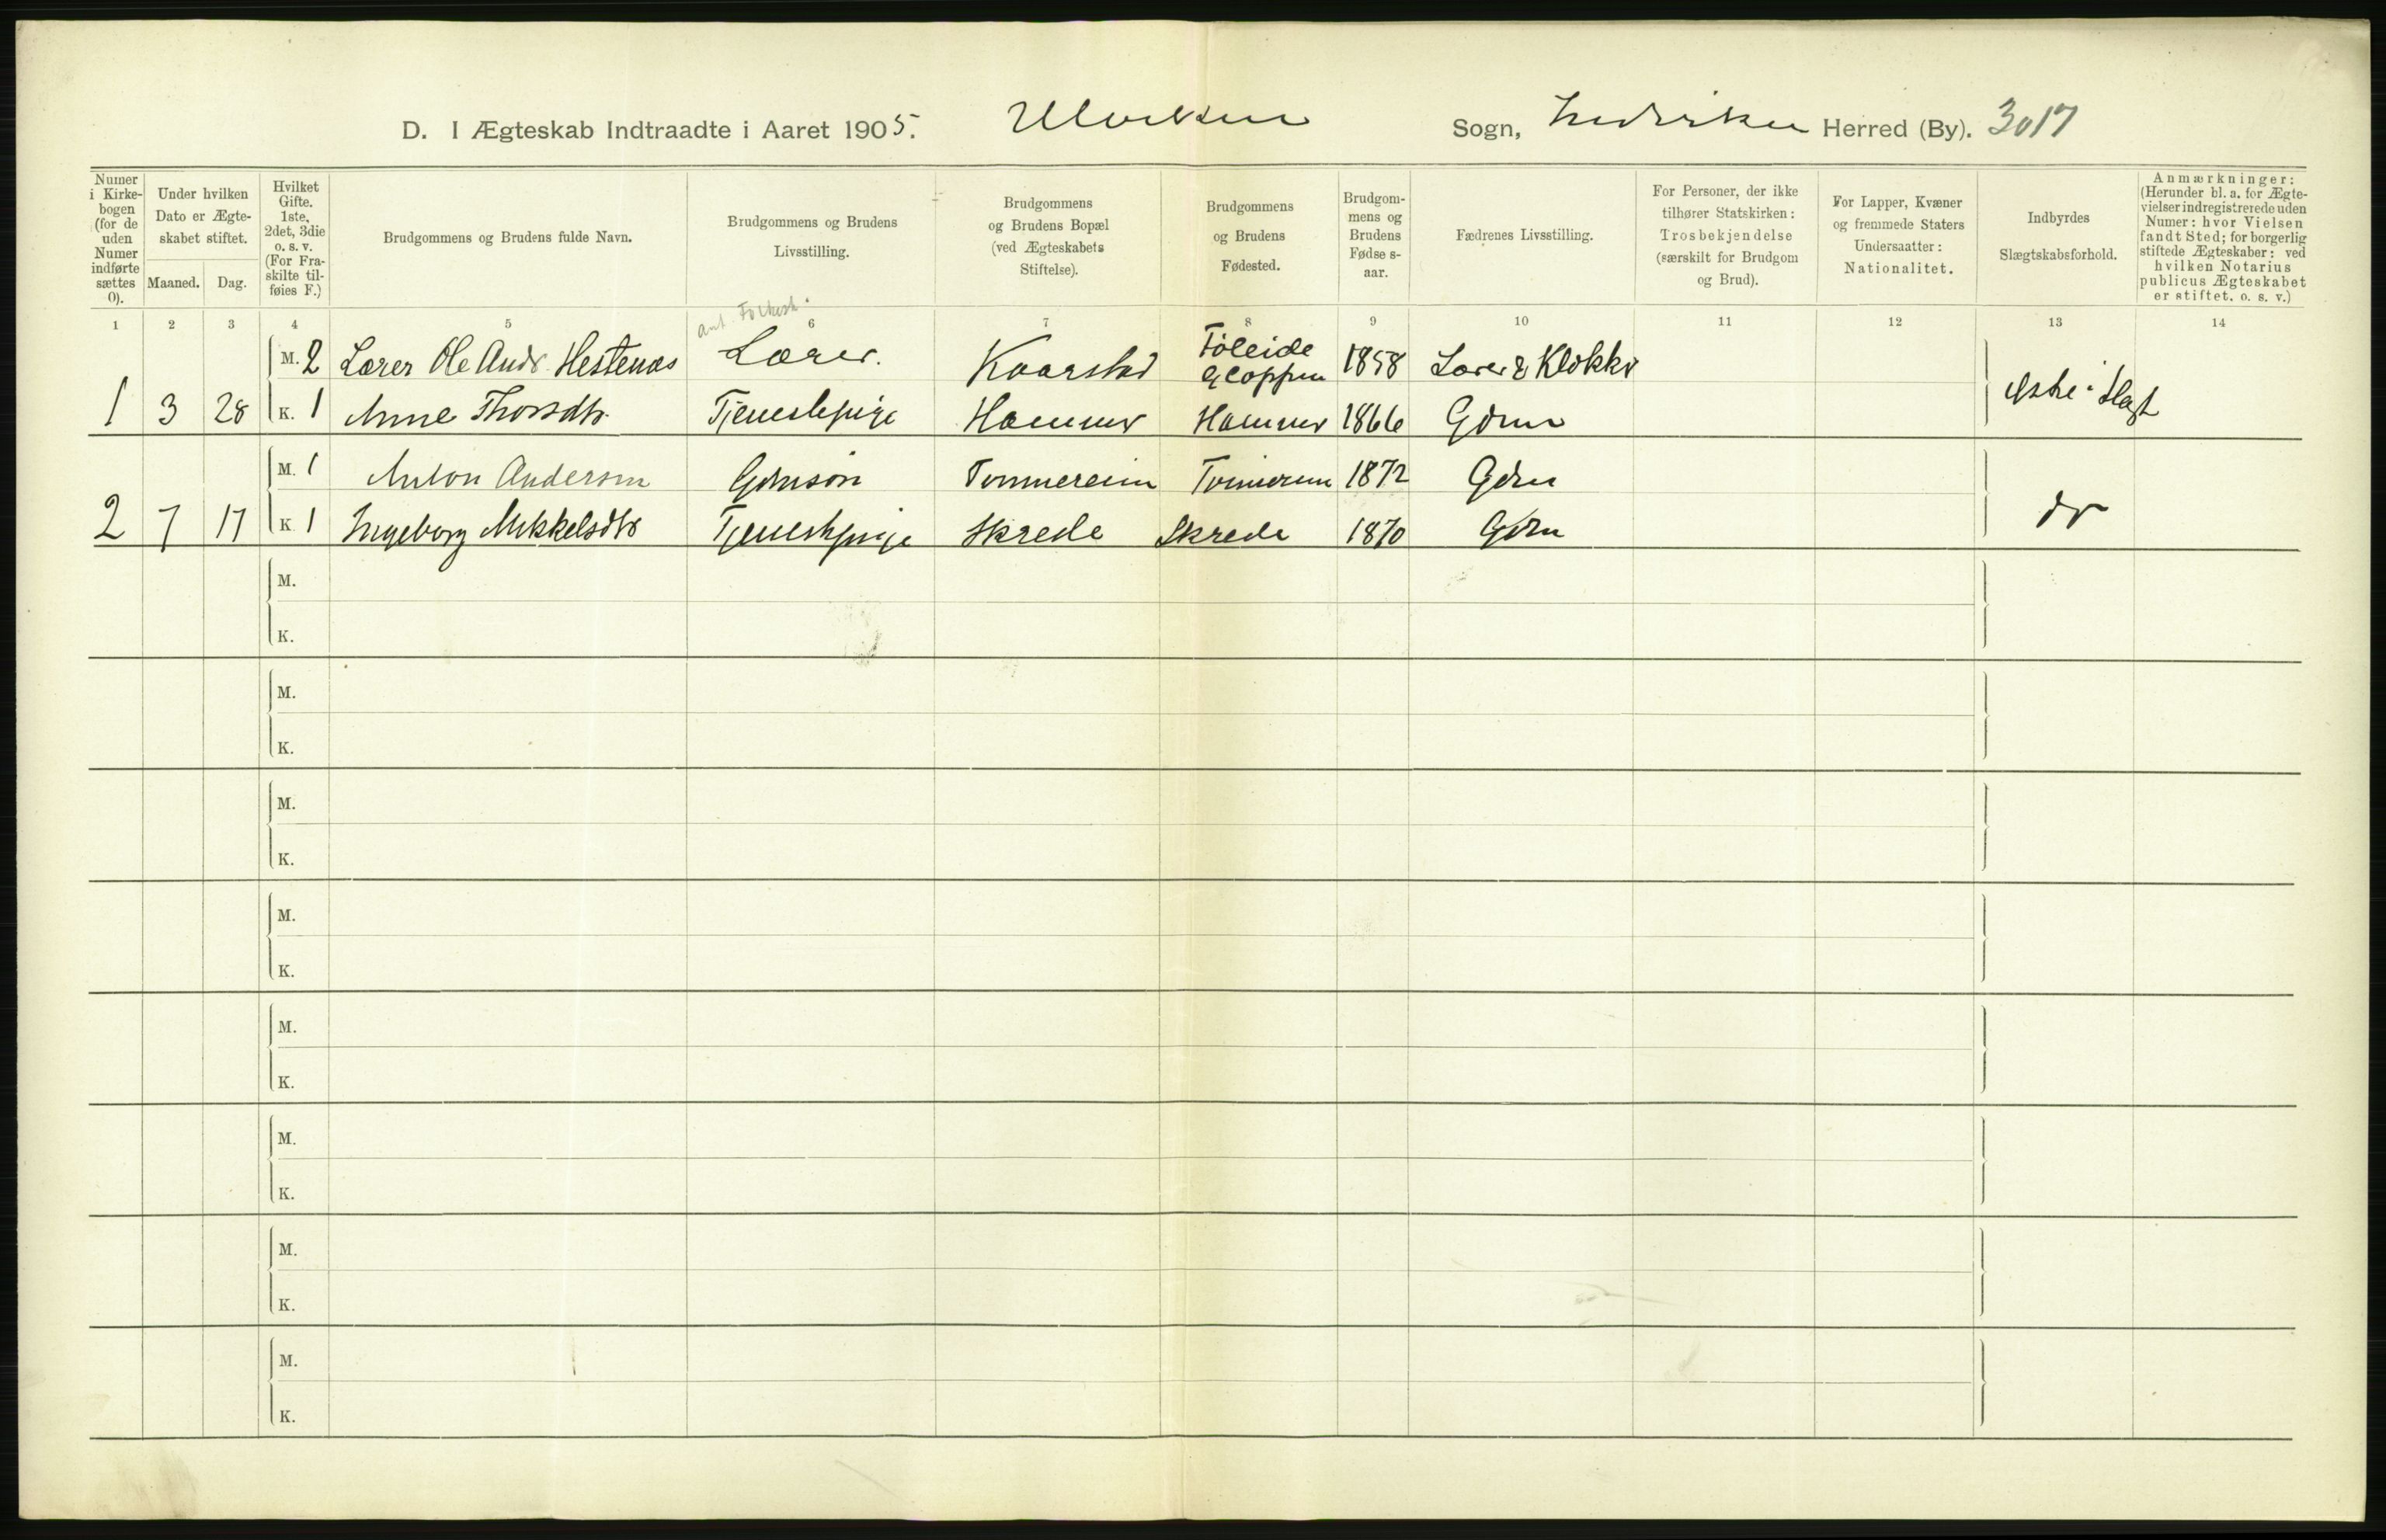 D. I Ægteskab Indtraadte i Aaret 1905. Utviken Sogn, Indviken Herred (By). 3017
Numer i Kirke-bogen (for de uden Numer indførte sættes 0).
Under hvilken Dato er Ægte-skabet stiftet.
Maaned. Dag.
Hvilket Gifte. 1ste, 2det, 3die o. s. v. (For Fra-skilte til-føies F.)
Brudgommens og Brudens fulde Navn.
Brudgommens og Brudens Livsstilling.
Brudgommens og Brudens Bopæl (ved Ægteskabets Stiftelse).
Brudgommens og Brudens Fødested.
Brudgom-mens og Brudens Fødse s-aar.
Fædrenes Livsstilling.
For Personer, der ikke tilhører Statskirken: Trosbekjendelse (særskilt for Brudgom og Brud).
For Lapper, Kvæner og fremmede Staters Undersaatter: Nationalitet.
Indbyrdes Slægtskabsforhold.
Anmærkninger: (Herunder bl. a. for Ægte-vielser indregistrerede uden Numer: hvor Vielsen fandt Sted; for borgerlig stiftede Ægteskaber: ved hvilken Notarius publicus Ægteskabet er stiftet. o. s. v.)
1 2 3 4 5 6 7 8 9 10 11 12 13 14
M. 2 Lærer Ole Andr. Hestenæs Lærer. Kaarstad Føleide Gloppen 1858 Lærer & Klokker
1 3 28 K. 1 Anne Thorsdtr. Tjenestepige Hammer Hammer 1866 Gdmr ikke i Slægt
M. 1 Anton Anderson Gdmsøn Tvinnereim Tvinnereim 1872 Gdm
2 7 17 K. 1 Ingeborg Mikkelsdtr Tjenestepige Skrede Skrede 1870 Gdm do
M.
K.
M.
K.
M.
K.
M.
K.
M.
K.
M.
K.
M.
K.
M.
K.